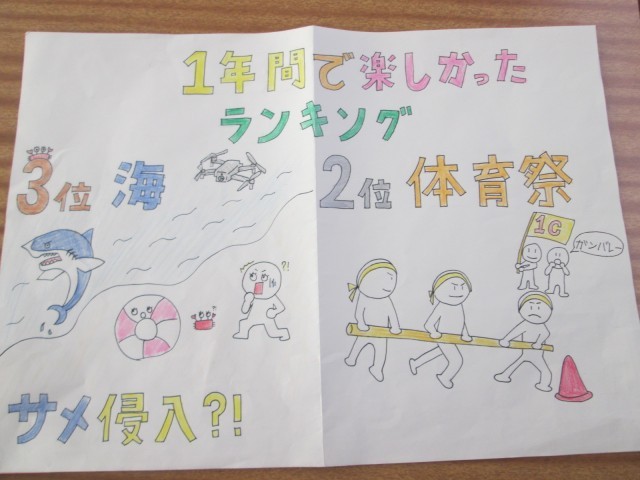 1年間で楽しかった
ランキング
3位 海
2位 体育祭
1C
ガンバレー
?!
サメ侵入?!